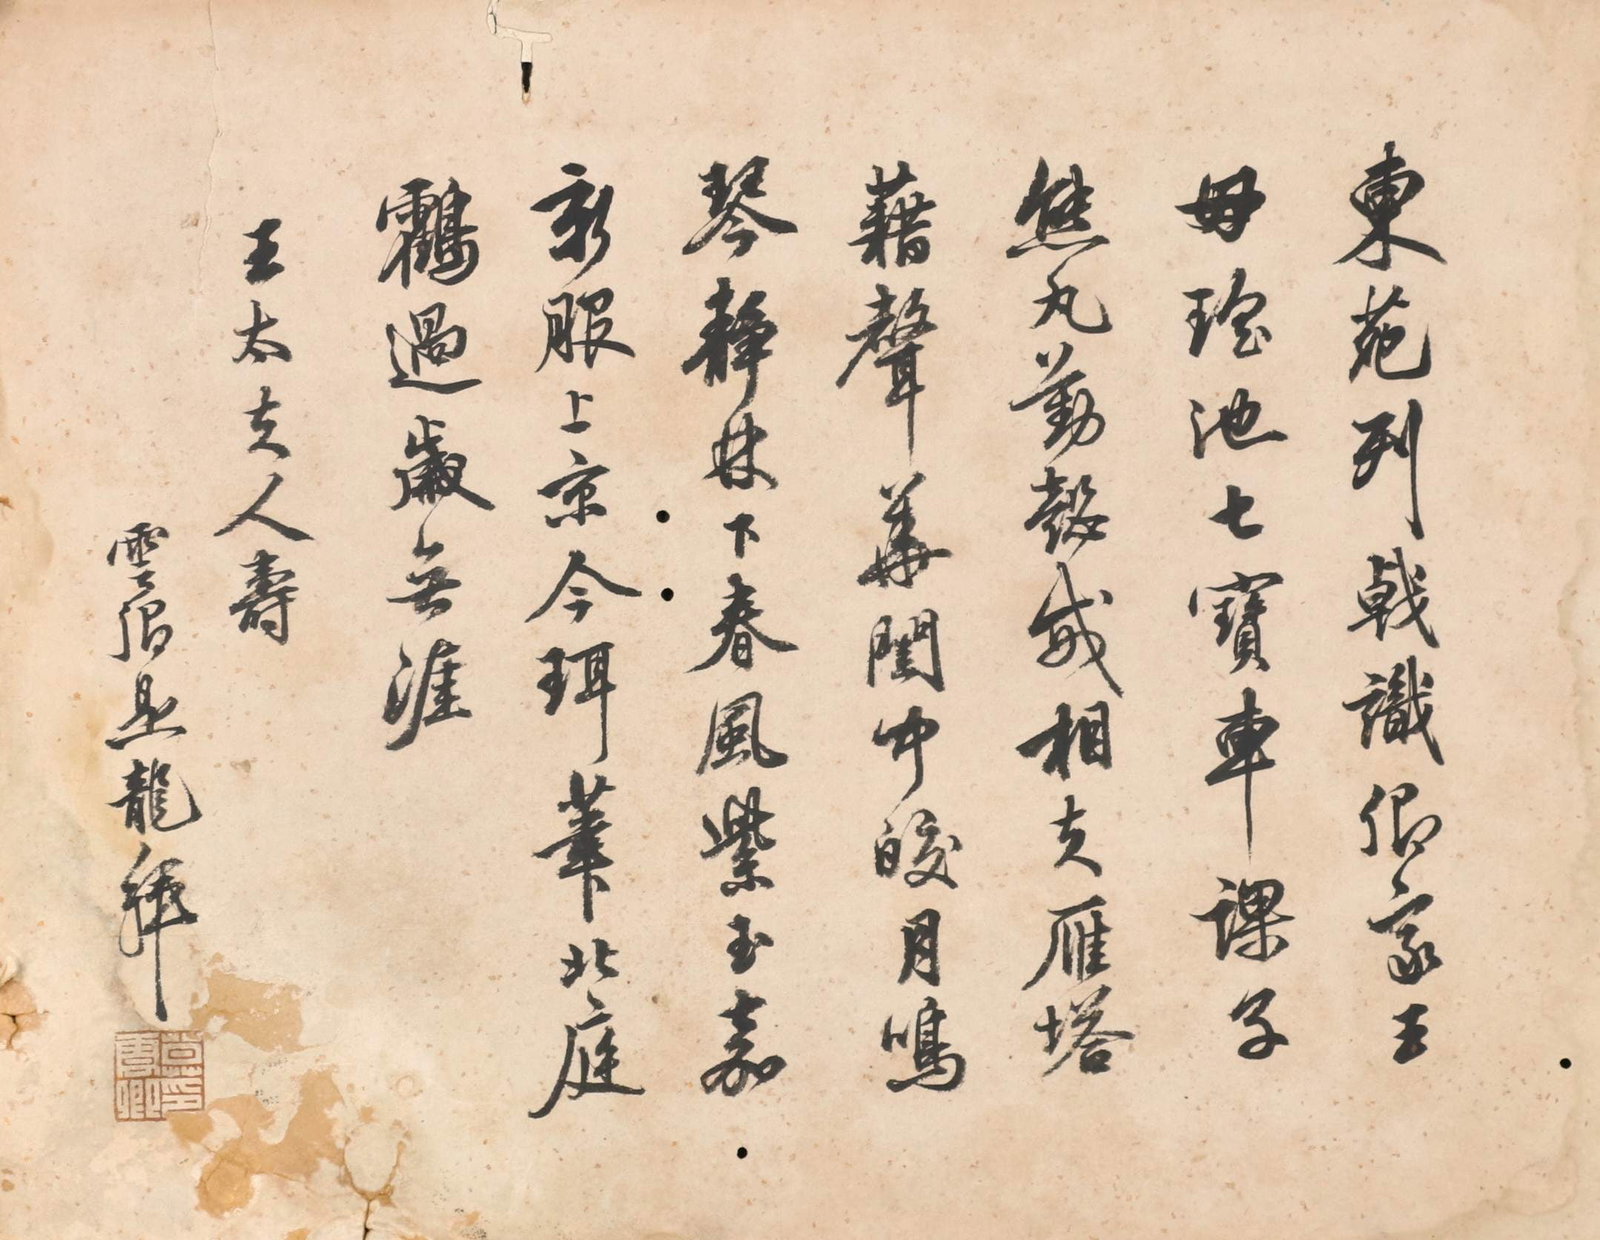 東苑列戟識卿家王
母瑤池七寶車課子
熊丸勤彀威相夫雁塔
藉聲華閨中皎月鳴
琴靜林下春風紫玉嘉
新服上京今珥筆北庭
鶴過歲無涯
王太夫人壽
雲卿是龍拜